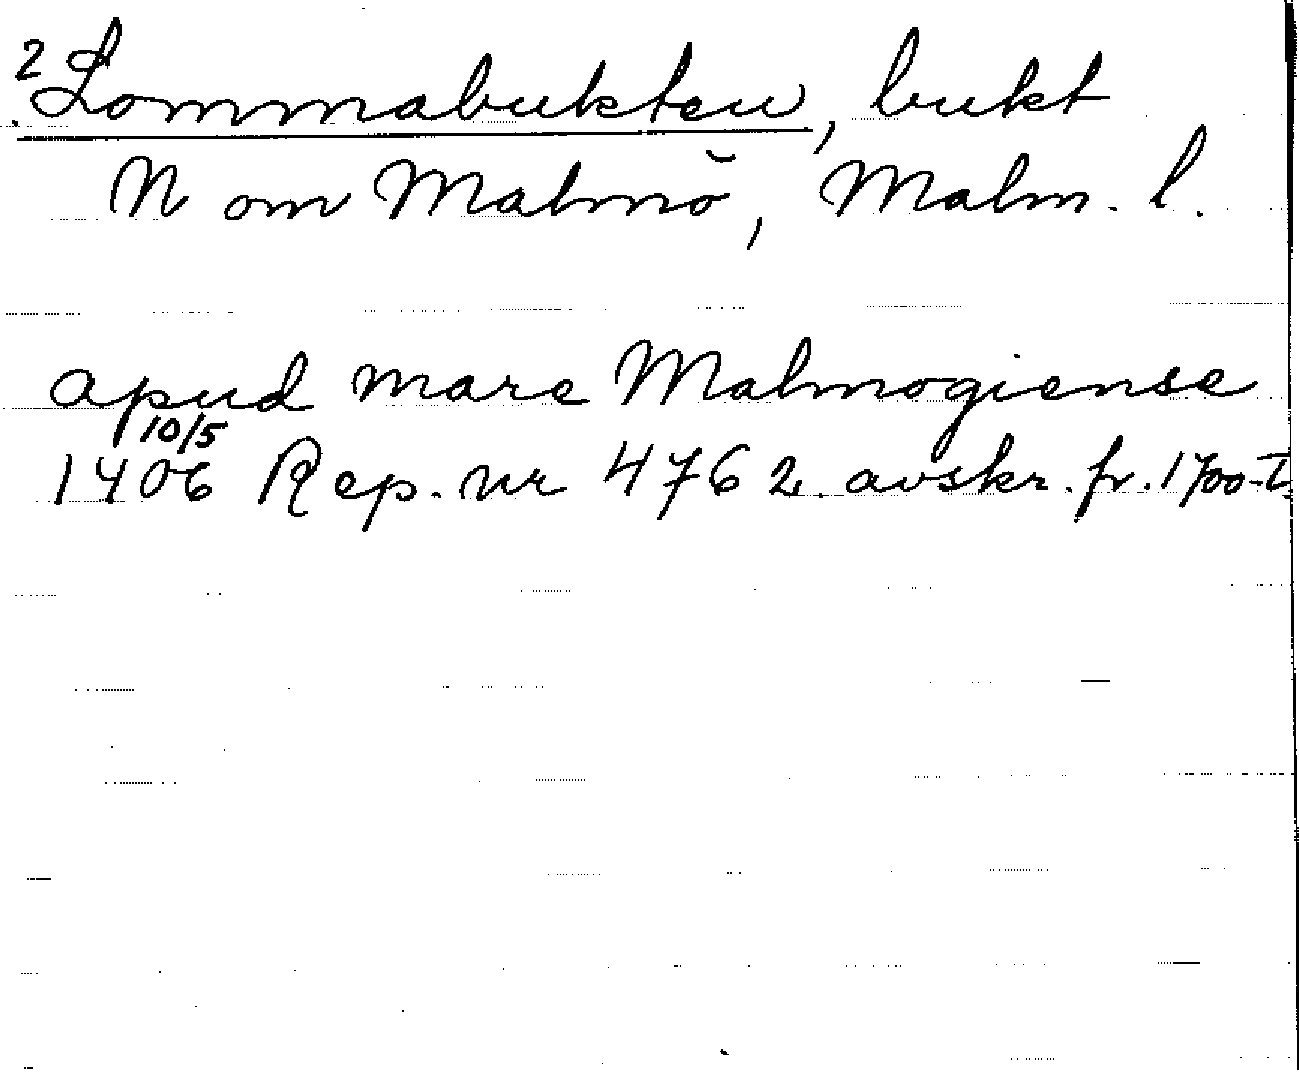 2 Lommabukten, bukt
N om Malmö, Malm. l.
apud mare Malmogiense
10/5
1406 Rep. nr 4762. avskr. fr. 1700-t.